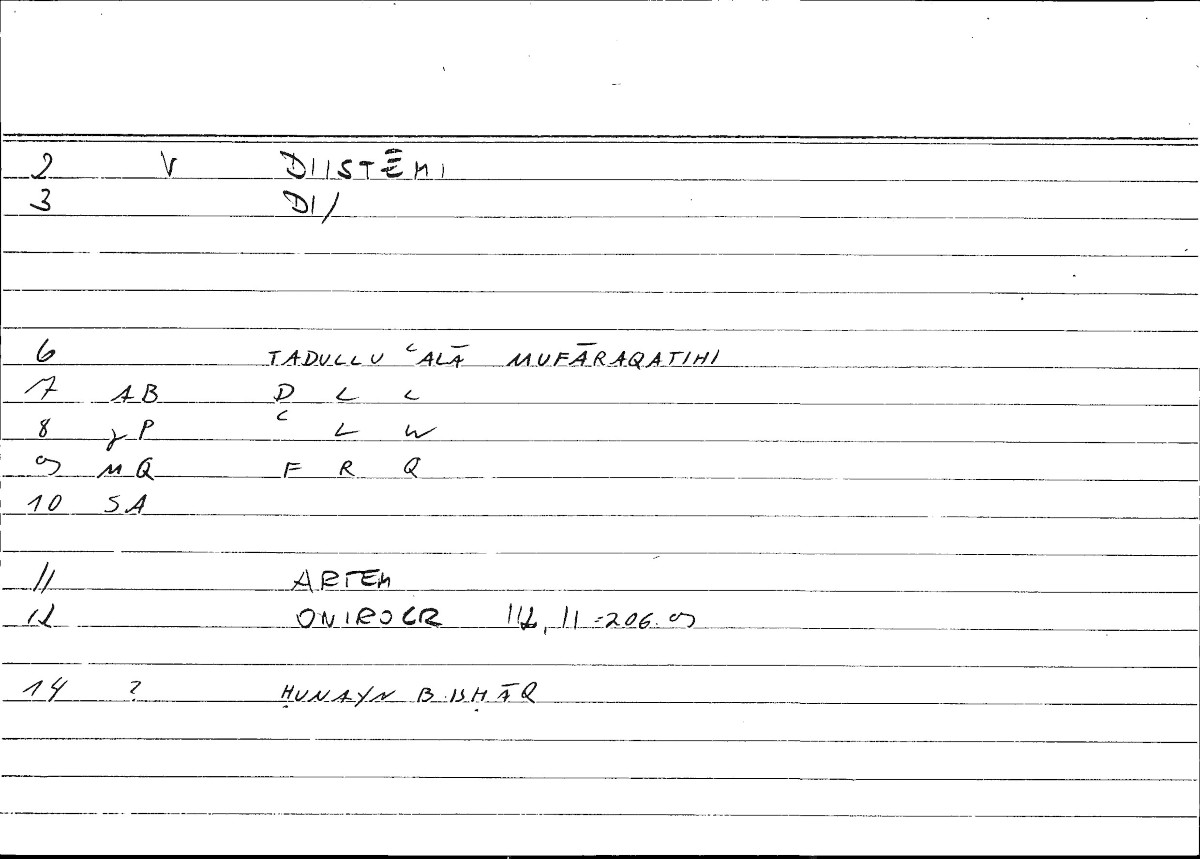 2 V DIISTĒMI
3 DI/
6 TADULLU ʿALĀ MUFĀRAQATIHI
7 AB D L L
8 γP ʿ L W
9 MQ F R Q
10 SA
11 ARTEM
12 ONIROCR 112, 11 = 206.9
14 ? ḤUNAYN B. ISḤĀQ